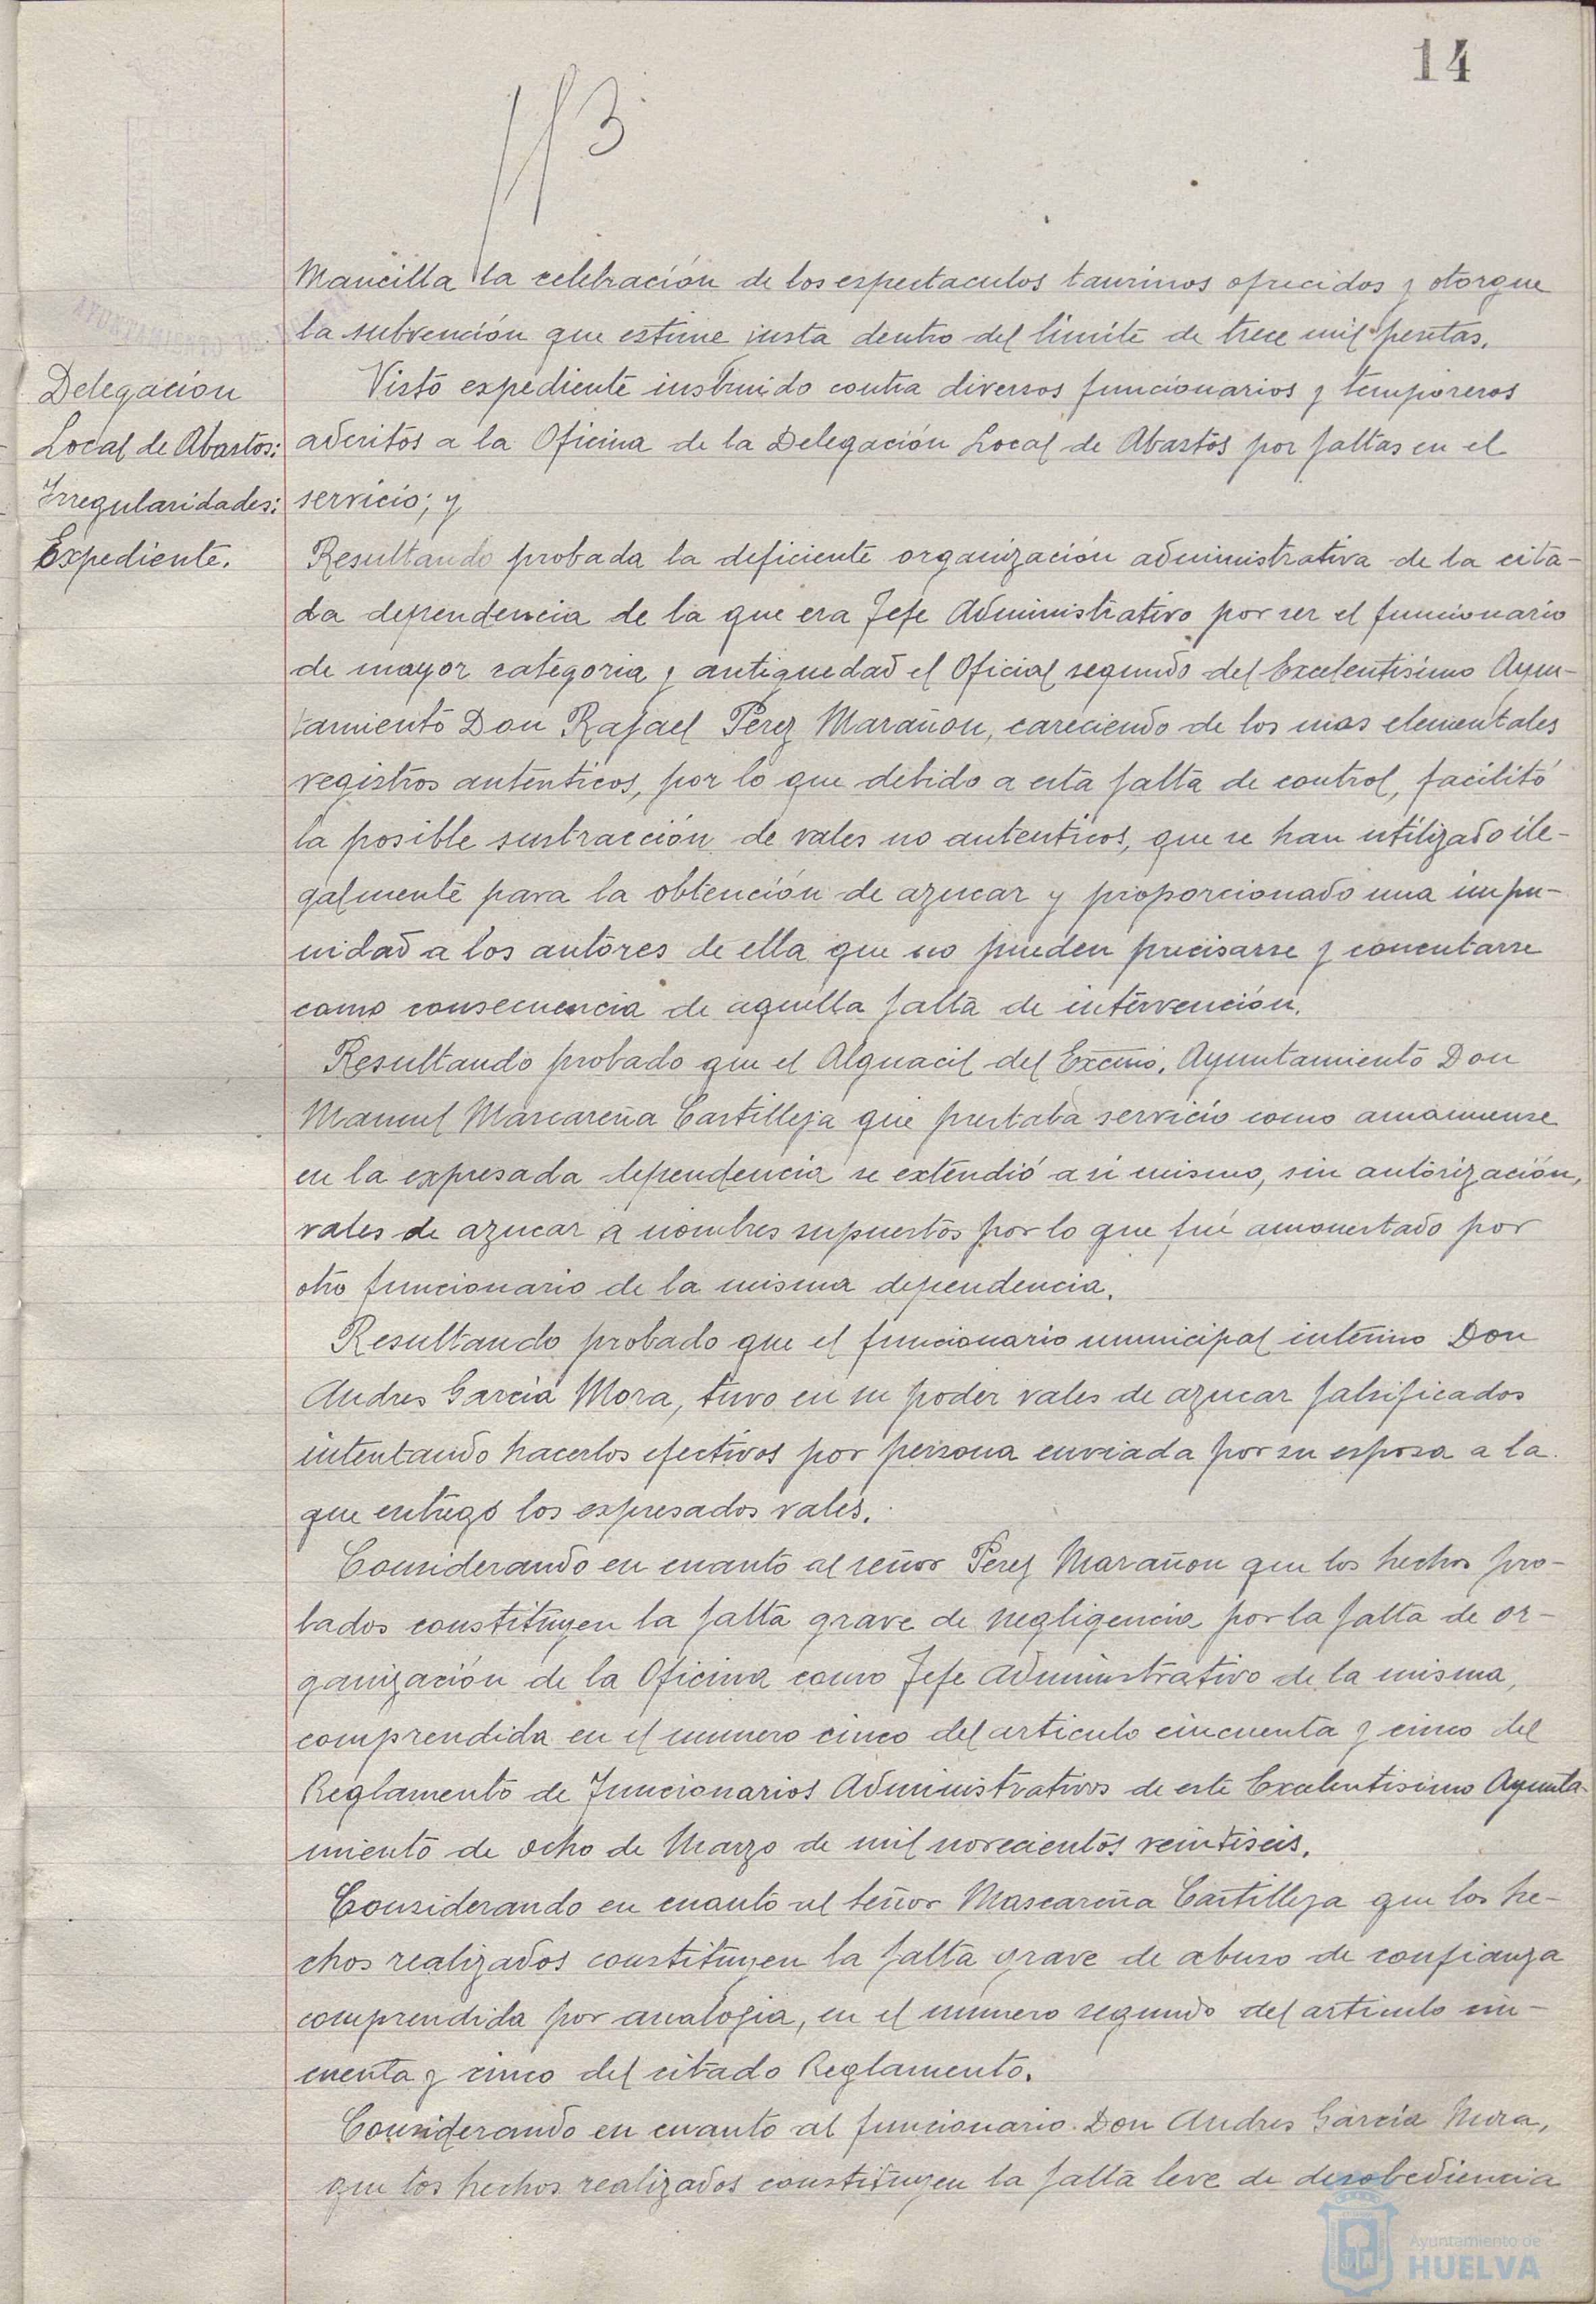 14
113
Mancilla la celebración de los espectaculos taurinos ofrecidos y otorgue
la subvención que estime justa dentro del límite de trece mil pesetas.
Delegación
Local de Abastos:
Irregularidades:
Expediente.
Visto expediente instruido contra diversos funcionarios y temporeros
adcritos a la Oficina de la Delegación Local de Abastos por faltas en el
servicio; y
Resultando probada la deficiente organización administrativa de la cita-
da dependencia de la que era Jefe Administrativo por ser el funcionario
de mayor categoria y antiguedad el Oficial segundo del Excelentisimo Ayun-
tamiento Don Rafael Perez Marañon, careciendo de los mas elementales
registros autenticos, por lo que debido a esta falta de control, facilitó
la posible sustracción de vales no autenticos, que se han utilizado ile-
galmente para la obtención de azucar y proporcionado una impu-
nidad a los autores de ella que no pueden precisarse y concretarse
como consecuencia de aquella falta de intervención.
Resultando probado que el Alguacil del Excmo. Ayuntamiento Don
Manuel Mascareña Castilleja que prestaba servicio como amanuense
en la expresada dependencia se extendió a si mismo, sin autorización,
vales de azucar a nombres supuestos por lo que fué amonestado por
otro funcionario de la misma dependencia.
Resultando probado que el funcionario municipal interino Don
Andres Garcia Mora, tuvo en su poder vales de azucar falsificados
intentando hacerlos efectivos por persona enviada por su esposa a la
que entregó los expresados vales.
Considerando en cuanto al señor Perez Marañon que los hechos pro-
bados constituyen la falta grave de negligencia por la falta de or-
ganización de la Oficina como Jefe Administrativo de la misma,
comprendida en el numero cinco del articulo cincuenta y cinco del
Reglamento de Funcionarios Administrativos de este Excelentisimo Ayunta-
miento de ocho de Marzo de mil novecientos veintiseis.
Considerando en cuanto al señor Mascareña Castilleja que los he-
chos realizados constituyen la falta grave de abuso de confianza
comprendida por analogia, en el numero segundo del articulo cin-
cuenta y cinco del citado Reglamento.
Considerando en cuanto al funcionario Don Andres Garcia Mora,
que los hechos realizados constituyen la falta leve de desobediencia
Ayuntamiento de
HUELVA